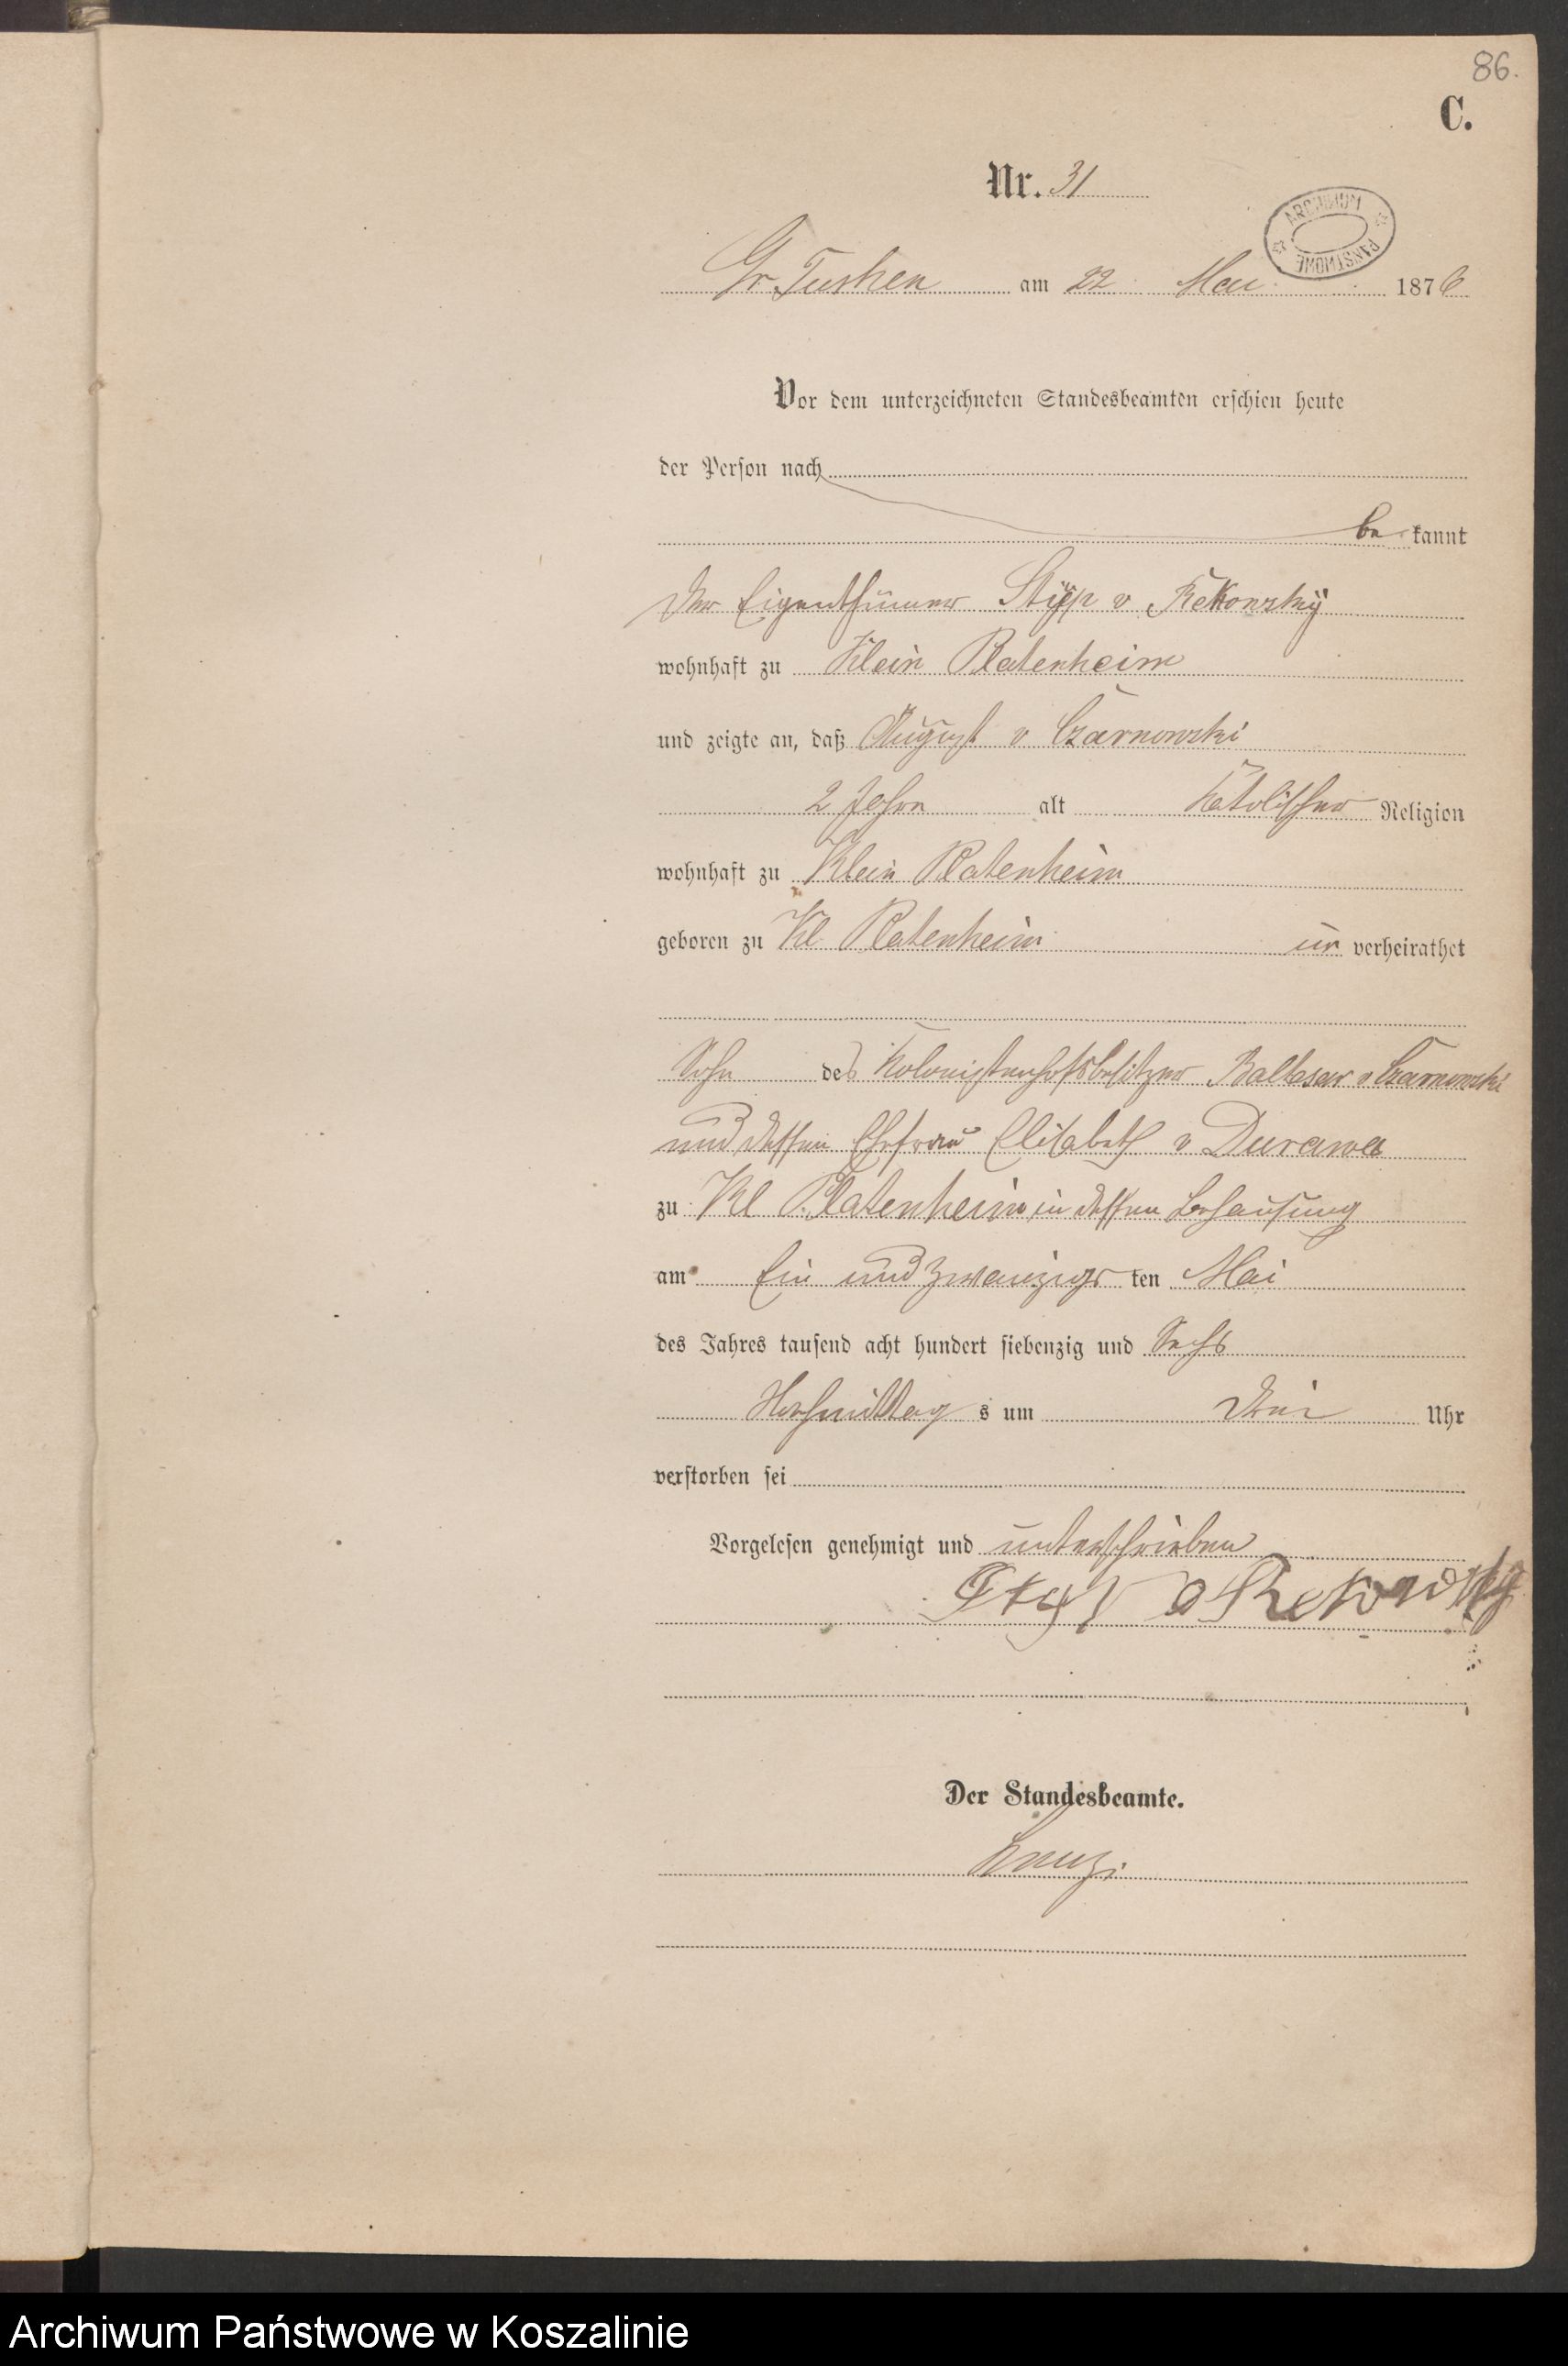 86.
C.
Nr. 31
ARCHIWUM PAŃSTWOWE
Gr. Tuchen am 22 Mai 1876
Vor dem unterzeichneten Standesbeamten erschien heute
der Person nach
be kannt
der Eigenthümer Styp v Rekowsky
wohnhaft zu Klein Platenheim
und zeigte an, daß August v Czarnowski
2 Jahre alt katolischer Religion
wohnhaft zu Klein Platenheim
geboren zu Kl Platenheim un verheirathet
Sohn des Kolonistenhofsbesitzer Baltasar v Czarnowski
und dessen Ehefrau Elisabeth v Durawa
zu Kl Platenheim in dessen Behausung
am Ein und zwanzigs ten Mai
des Jahres tausend acht hundert siebenzig und Sechs
Nachmittag s um Drei Uhr
verstorben sei
Vorgelesen genehmigt und unterschrieben
Styp v Rekowsky
Der Standesbeamte.
Archiwum Państwowe w Koszalinie